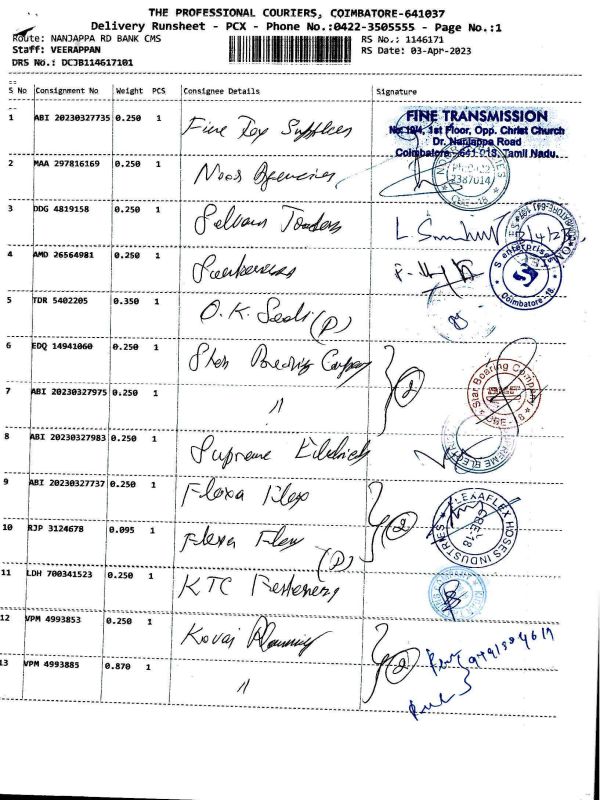 THE PROFESSIONAL COURIERS, COIMBATORE-641037
Delivery Runsheet - PCX - Phone No.:0422-3505555 - Page No.:1
Route: NANJAPPA RD BANK CMS
RS No.: 1146171
Staff: VEERAPPAN
RS Date: 03-Apr-2023
DRS No.: DCJB114617101
S No Consignment No Weight PCS Consignee Details Signature
1 ABI 20230327735 0.250 1 Fine Tex Supplies
FINE TRANSMISSION
No: 194, 1st Floor, Opp. Christ Church
Dr. Nanjappa Road
Coimbatore - 641 018, Tamil Nadu.
2 MAA 297816169 0.250 1 Agencies
2387014
CBE-18
3 DDG 4819158 0.250 1 Selvam Traders
4 AMD 26564981 0.250 1
S enterprises
Coimbatore-18.
5 TDR 5402205 0.350 1 O.K. Seals (P)
6 EDQ 14941060 0.250 1 Star Bearing Company
2
Star Bearing Company
CBE-18
7 ABI 20230327975 0.250 1 〃
8 ABI 20230327983 0.250 1 Supreme
9 ABI 20230327737 0.250 1 Flexa Flex
2
FLEXAFLEX HOSES INDUSTRIES
CBE-18
10 RJP 3124678 0.095 1 Flexa Flex
(P)
11 LDH 700341523 0.250 1 KTC Fasteners
12 VPM 4993853 0.250 1 Kovai
2
13 VPM 4993885 0.870 1 〃